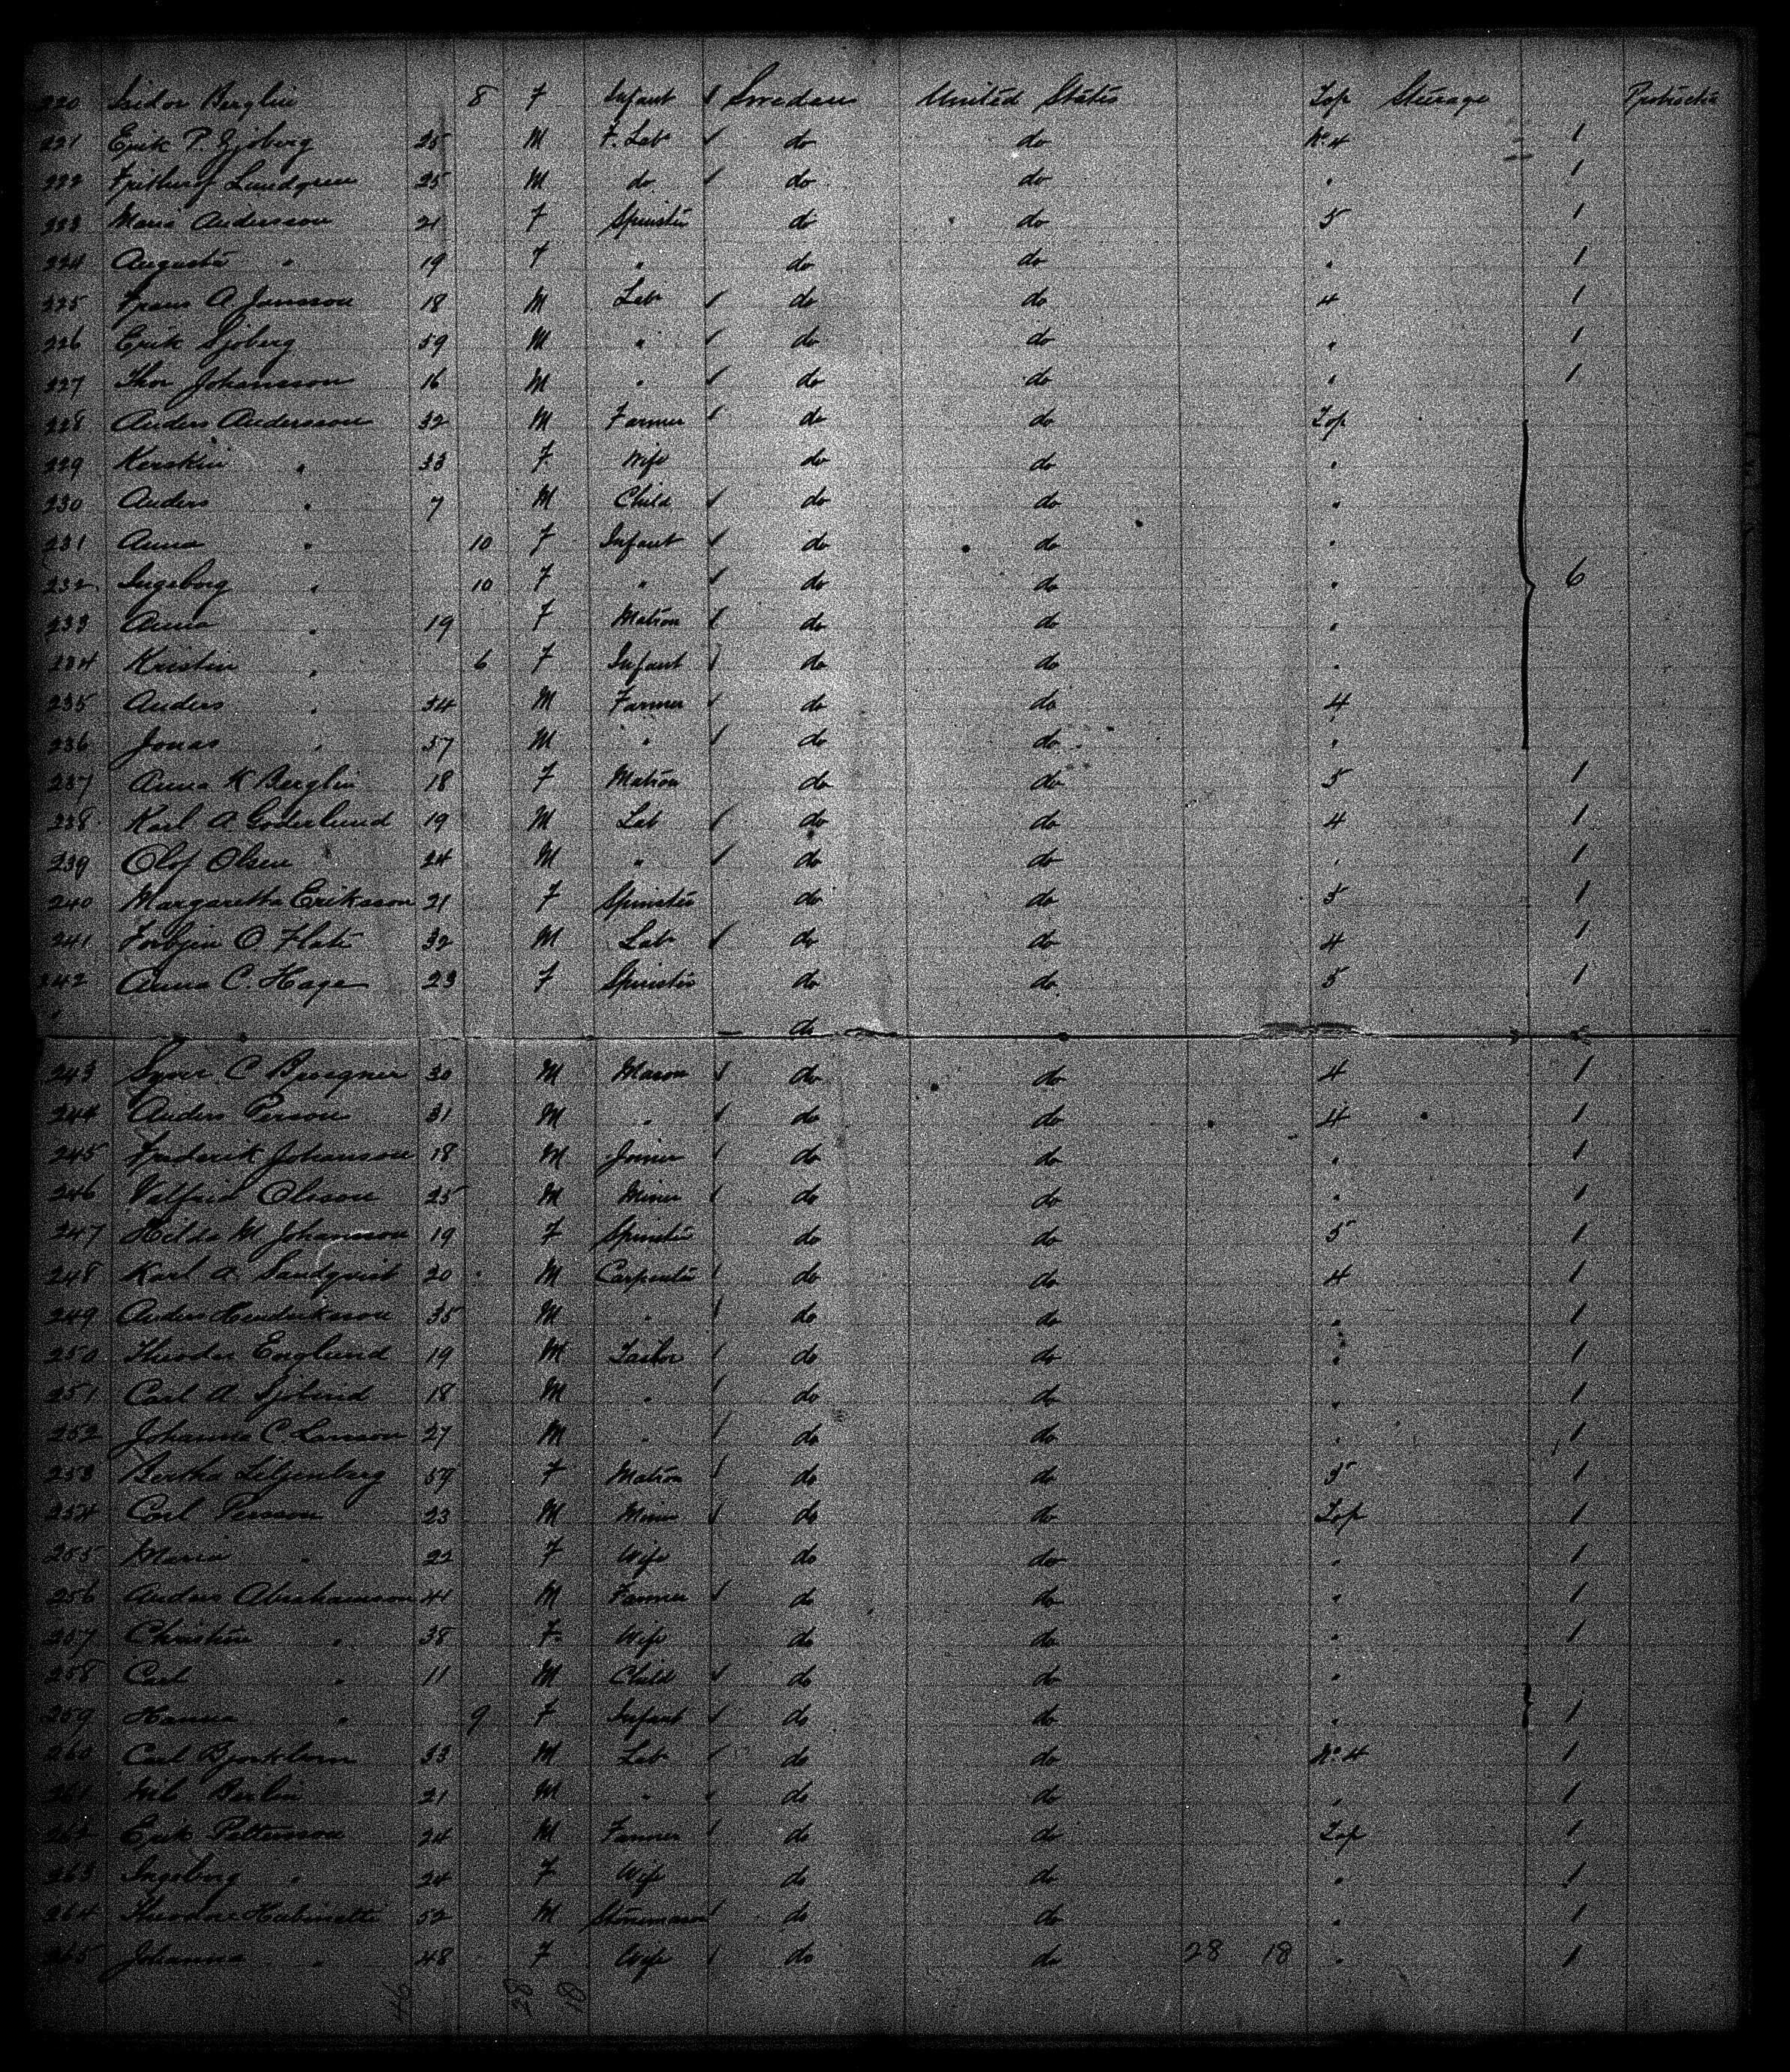 220 Isidor Berglin 8 F Infant Sweden United States Top Steerage Protracted
221 Erik P. Sjoberg 25 M F. Lab do do No. 4 1
222 Fritherf Lundgren 25 M do do do " 1
223 Maria Andersson 21 F Spinster do do 5 1
224 Augusta " 19 F " do do " 1
225 Frans A. Jansson 18 M Lab do do 4 1
226 Erik Sjoberg 59 M " do do " 1
227 Thor Johansson 16 M " do do " 1
228 Anders Andersson 32 M Farmer do do Top
229 Kerskin " 33 F Wife do do "
230 Anders " 7 M Child do do "
231 Anna " 10 F Infant do do "
232 Ingeborg " 10 F " do do " 6
233 Anna " 19 F Matron do do "
234 Kristin " 6 F Infant do do "
235 Anders " 34 M Farmer do do 4
236 Jonas " 37 M " do do "
237 Anna K Berglin 18 F Matron do do 5 1
238 Karl A. Soderlund 19 M Lab do do 4 1
239 Olof Olsen 24 M " do do " 1
240 Margaretha Eriksson 21 F Spinster do do 5 1
241 O. Flate 32 M Lab do do 4 1
242 Anna C. Hage 23 F Spinster do do 5 1
" do
243 C 30 M Mason do do 4 1
244 Anders Person 31 M " do do 4 1
245 Frederik Johanson 18 M Joiner do do " 1
246 Valfrid Olsson 25 M Miner do do " 1
247 Hilda M Johansson 19 F Spinster do do 5 1
248 Karl A. Sandqvist 20 M Carpenter do do 4 1
249 Anders Hendriksson 35 M " do do " 1
250 Theodor Englund 19 M Tailor do do " 1
251 Carl A. 18 M " do do " 1
252 Johanna C. Larsson 27 M " do do " 1
253 Bertha Liljenberg 59 F Matron do do 5 1
254 Carl Persson 23 M Miner do do Top 1
255 Maria " 22 F Wife do do " 1
256 Anders Abrahamson 44 M Farmer do do " 1
257 Christin " 38 F Wife do do " 1
258 Carl " 11 M Child do do "
259 Hanna " 9 F Infant do do " 1
260 Carl 33 M Lab do do No. 4 1
261 Nils Berlin 21 M " do do " 1
262 Erik Pettersson 24 M Farmer do do Top 1
263 Ingeborg " 24 F Wife do do " 1
264 Theodore 52 M Stonemason do do " 1
265 Johanna " 48 F Wife do do 28 18 " 1
46 28 18